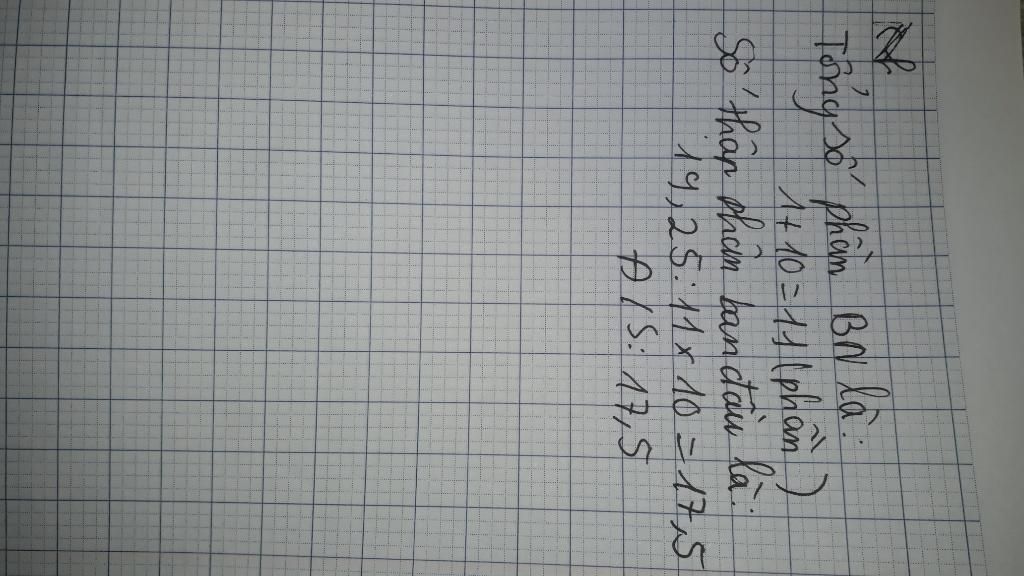 Tổng số phần BN là:
1+10=11(phần)
Số thập phân ban đầu là:
19,25:11x10=17,5
Đ/S: 17,5